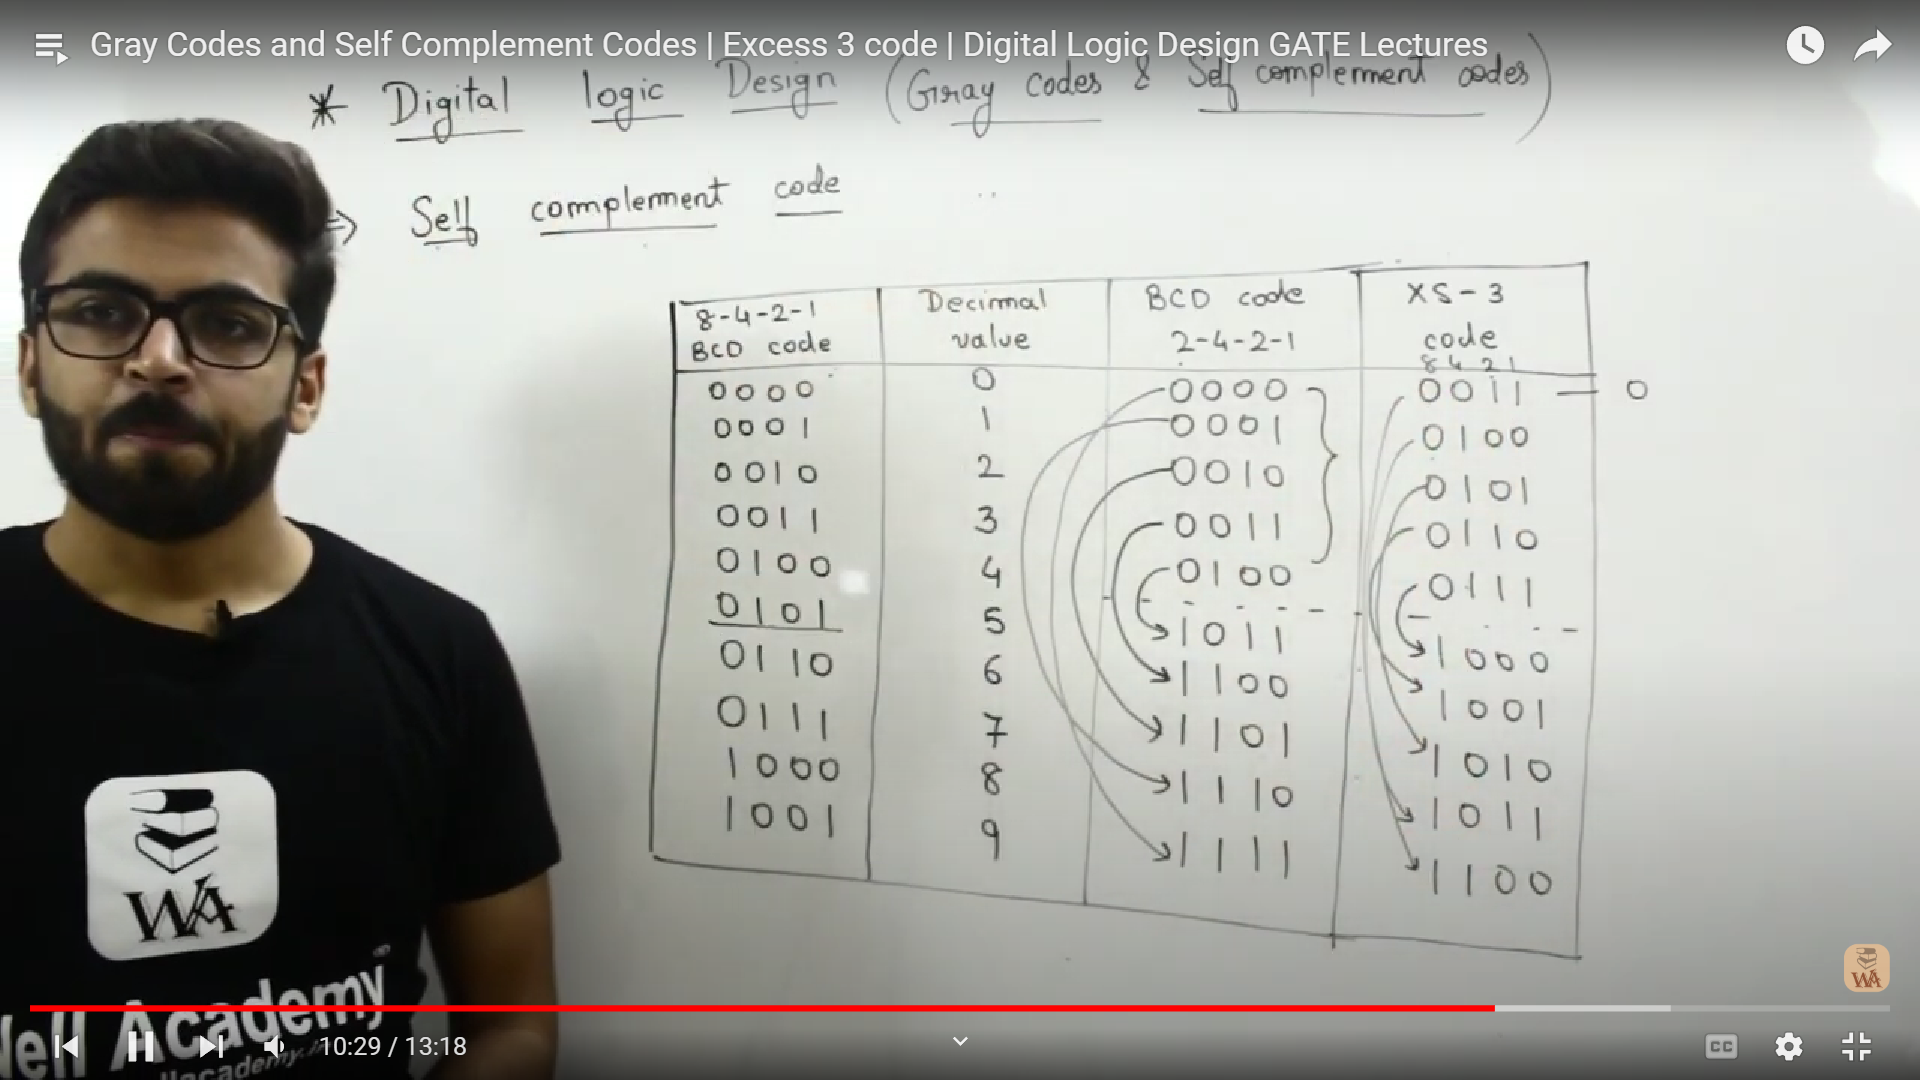 Gray Codes and Self Complement Codes | Excess 3 code | Digital Logic Design GATE Lectures
* Digital logic Design (Gray codes & Self complement codes)
⇒ Self complement code
8-4-2-1 BCD code
Decimal value
BCD code 2-4-2-1
XS-3 code
8 4 2 1
0000 0 0000 0011 — 0
0001 1 0001 0100
0010 2 0010 0101
0011 3 0011 0110
0100 4 0100 0111
0101 5 1011 1000
0110 6 1100 1001
0111 7 1101 1010
1000 8 1110 1011
1001 9 1111 1100
WA
WA
ell Academy
10:29 / 13:18
CC